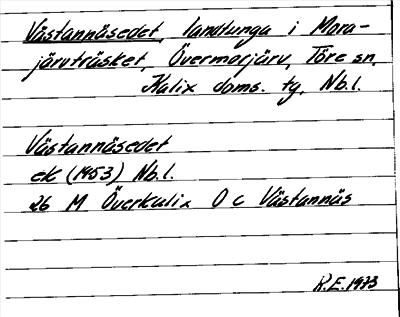 Västannäsedet, landtunga i Mora-
järvträsket, Övermorjärv, Töre sn,
Kalix doms. tg, Nb.l.
Västannäsedet
ek (1953) Nb.l.
26 M Överkalix O c Västannäs
K.E. 1973